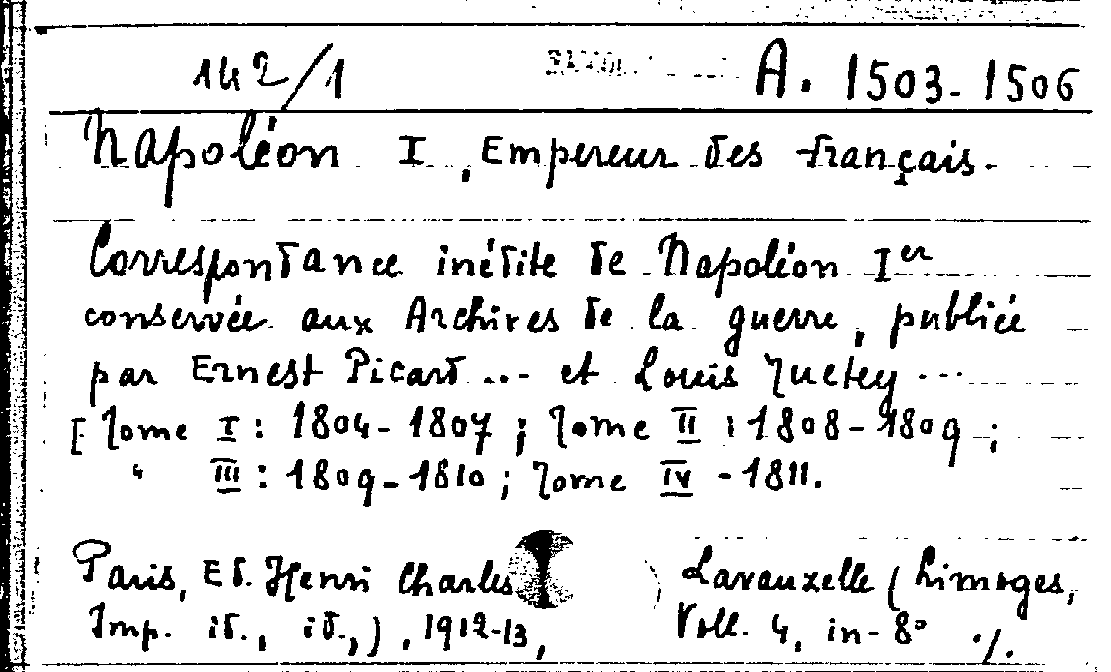 142/1 A. 1503-1506
Napoléon I, Empereur des français.
Correspondance inédite de Napoléon Ier
conservée aux Archives de la guerre, publiée
par Ernest Picard ... et Louis Tuetey ...
[Tome I : 1804-1807 ; Tome II : 1808-1809 ;
" III : 1809-1810 ; Tome IV - 1811.
Paris, Ed. Henri Charles Lavauzelle (Limoges,
Imp. id., id.,) , 1912-13, Voll. 4, in-8° ./.